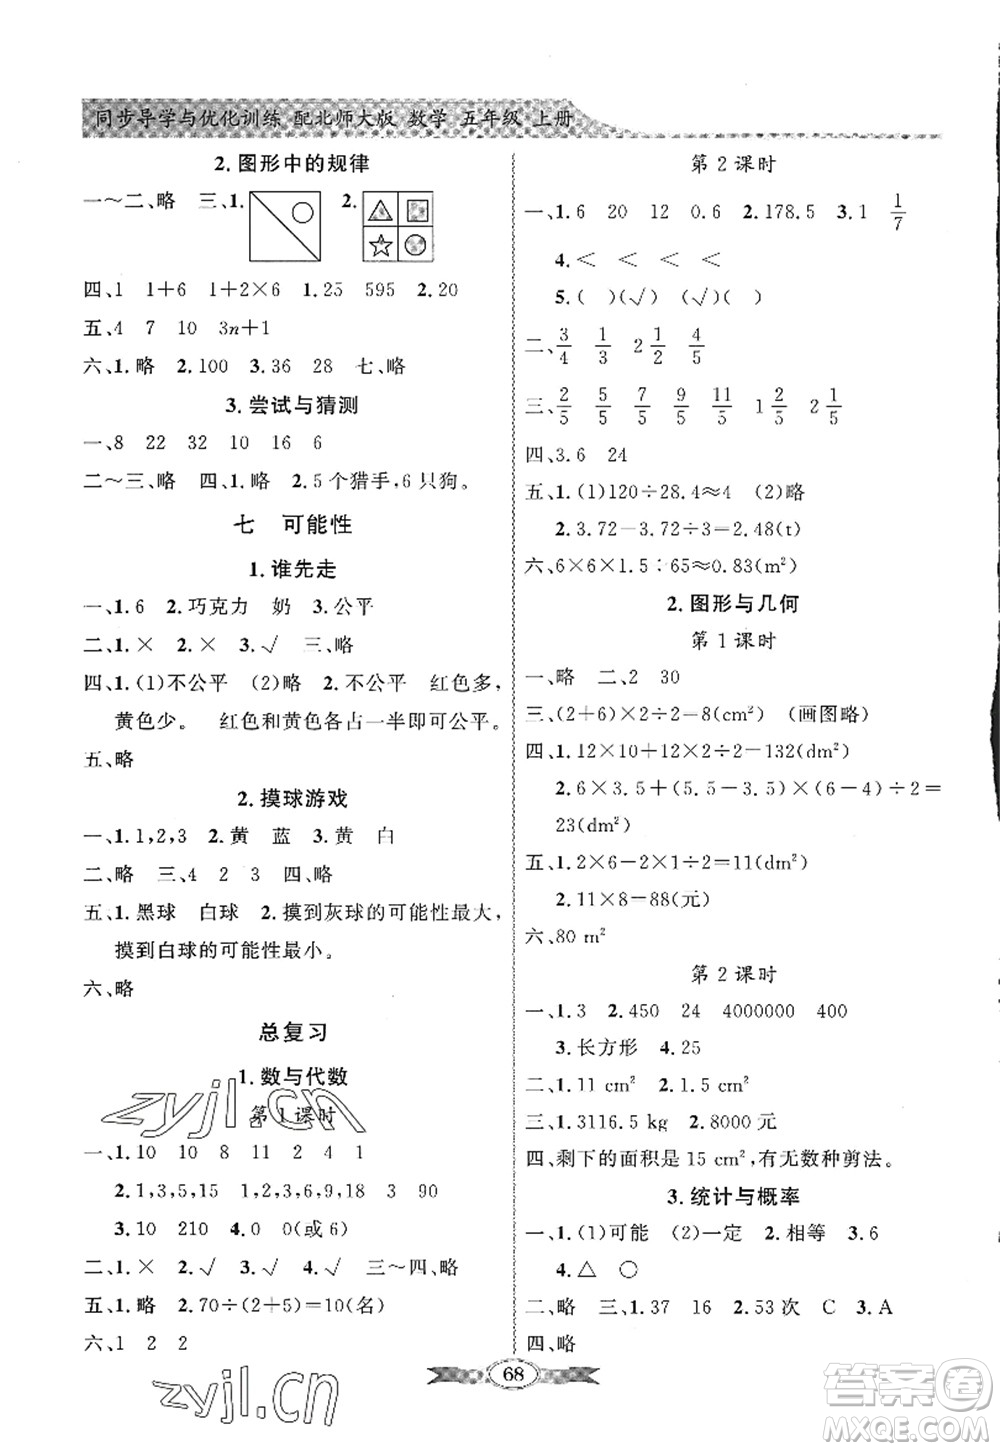 同步导学与优化训练 配北师大版 数学 五年级 上册
2.图形中的规律
一～二、略 三、1. 2.
四、1 1+6 1+2×6 1.25 595 2.20
五、4 7 10 3n+1
六、1.略 2.100 3.36 28 七、略
3.尝试与猜测
一、8 22 32 10 16 6
二～三、略 四、1.略 2.5个猎手,6只狗。
七 可能性
1.谁先走
一、1.6 2.巧克力 奶 3.公平
二、1.× 2.× 3.√ 三、略
四、1.(1)不公平 (2)略 2.不公平 红色多,
黄色少。 红色和黄色各占一半即可公平。
五、略
2.摸球游戏
一、1.1,2,3 2.黄 蓝 3.黄 白
二、略 三、4 2 3 四、略
五、1.黑球 白球 2.摸到灰球的可能性最大,
摸到白球的可能性最小。
六、略
总复习
1.数与代数
第1课时
一、1.10 10 8 11 2 4 1
2.1,3,5,15 1,2,3,6,9,18 3 90
3.10 210 4.0 0(或6)
二、1.× 2.√ 3.√ 4.√ 三～四、略
五、1.略 2.70÷(2+5)=10(名)
六、1 2 2
第2课时
一、1.6 20 12 0.6 2.178.5 3.1 1/7
4.< < < <
5.( )(√) (√)( )
二、3/4 1/3 2 1/2 4/5
三、2/5 5/5 7/5 9/5 11/5 1 2/5 2 1/5
四、3.6 24
五、1.(1)120÷28.4≈4 (2)略
2.3.72-3.72÷3=2.48(t)
六、6×6×1.5∶65≈0.83(m²)
2.图形与几何
第1课时
一、略 二、2 30
三、(2+6)×2÷2-8(cm²) (画图略)
四、1.12×10+12×2÷2-132(dm²)
2.6×3.5+(5.5-3.5)×(6-4)÷2=
23(dm²)
五、1.2×6-2×1÷2=11(dm²)
2.11×8-88(元)
六、80 m²
第2课时
一、1.3 2.450 24 4000000 400
3.长方形 4.25
二、1.11 cm² 2.1.5 cm²
三、1.3116.5 kg 2.8000元
四、剩下的面积是15 cm²,有无数种剪法。
3.统计与概率
一、1.(1)可能 (2)一定 2.相等 3.6
4.△ ○
二、略 三、1.37 16 2.53次 C 3.A
四、略
68
zyjl.cn
zyjl.cn
答案圈
MXQE.COM